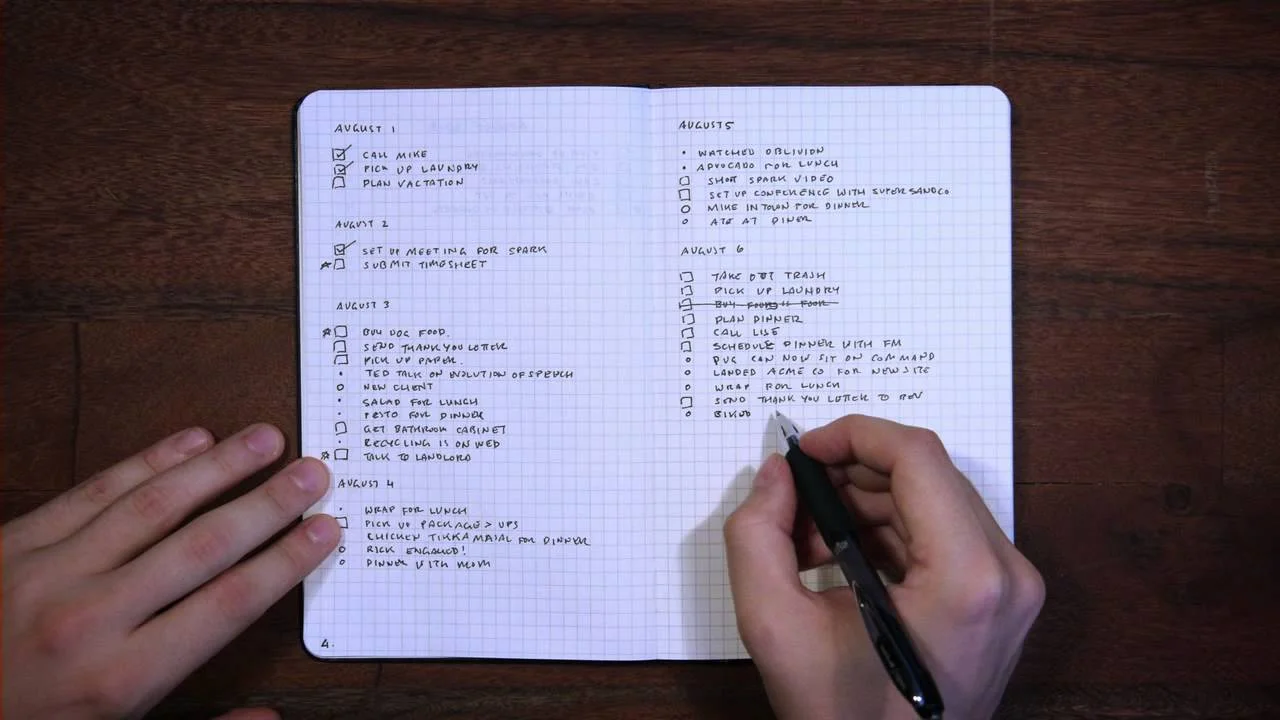 AUGUST 1
CALL MIKE
PICK UP LAUNDRY
PLAN VACTATION
AUGUST 2
SET UP MEETING FOR SPARK
SUBMIT TIMESHEET
AUGUST 3
BUY DOG FOOD.
SEND THANK YOU LETTER
PICK UP PAPER.
TED TALK ON EVOLUTION OF SPEECH
NEW CLIENT
SALAD FOR LUNCH
PESTO FOR DINNER
GET BATHROOM CABINET
RECYCLING IS ON WED
TALK TO LANDLORD
AUGUST 4
WRAP FOR LUNCH
PICK UP PACKAGE > UPS
CHICKEN TIKKA MASAL FOR DINNER
RICK ENGAGED!
DINNER WITH MOM
4.
AUGUST 5
WATCHED OBLIVION
ADVOCADO FOR LUNCH
SHOOT SPARK VIDEO
SET UP CONFERENCE WITH SUPER SANDCO
MIKE IN TOWN FOR DINNER
ATE AT DINER
AUGUST 6
TAKE OUT TRASH
PICK UP LAUNDRY
BUY
PLAN DINNER
CALL LISE
SCHEDULE DINNER WITH FM
PUG CAN NOW SIT ON COMMAND
LANDED ACME CO FOR NEW SITE
WRAP FOR LUNCH
SEND THANK YOU LETTER TO